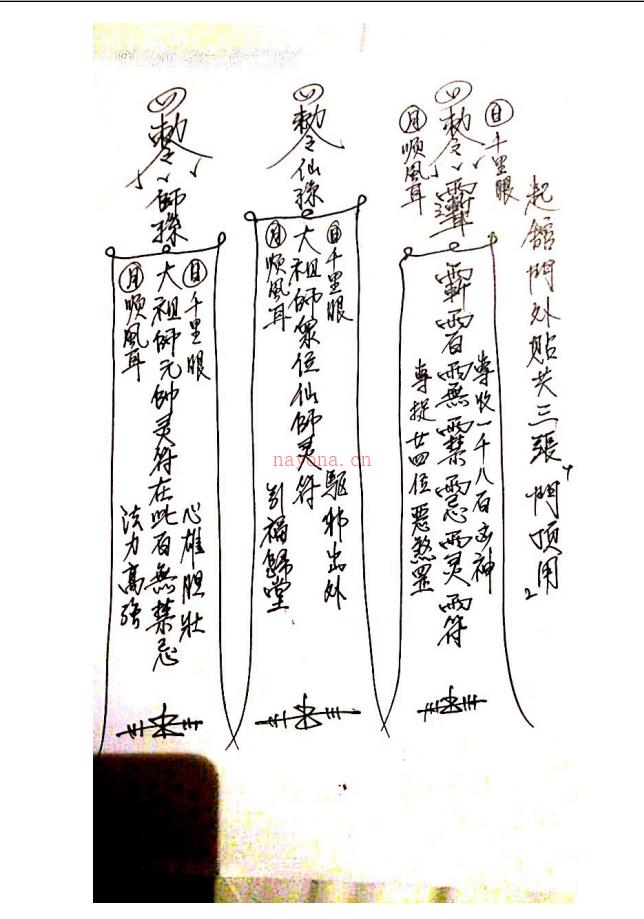 起館門外貼共三張門頂用
日千里眼
勅令
月順風耳
專收一千八百凶神
專捉廿四位惡煞罡
勅令仙孫
日千里眼
大祖師眾位仙師灵符
月順風耳
驅邪出外
引福歸堂
勅令師孫
日千里眼
大祖師元帥灵符在此百無禁忌
月順風耳
心雄胆壯
法力高強
nayona.cn